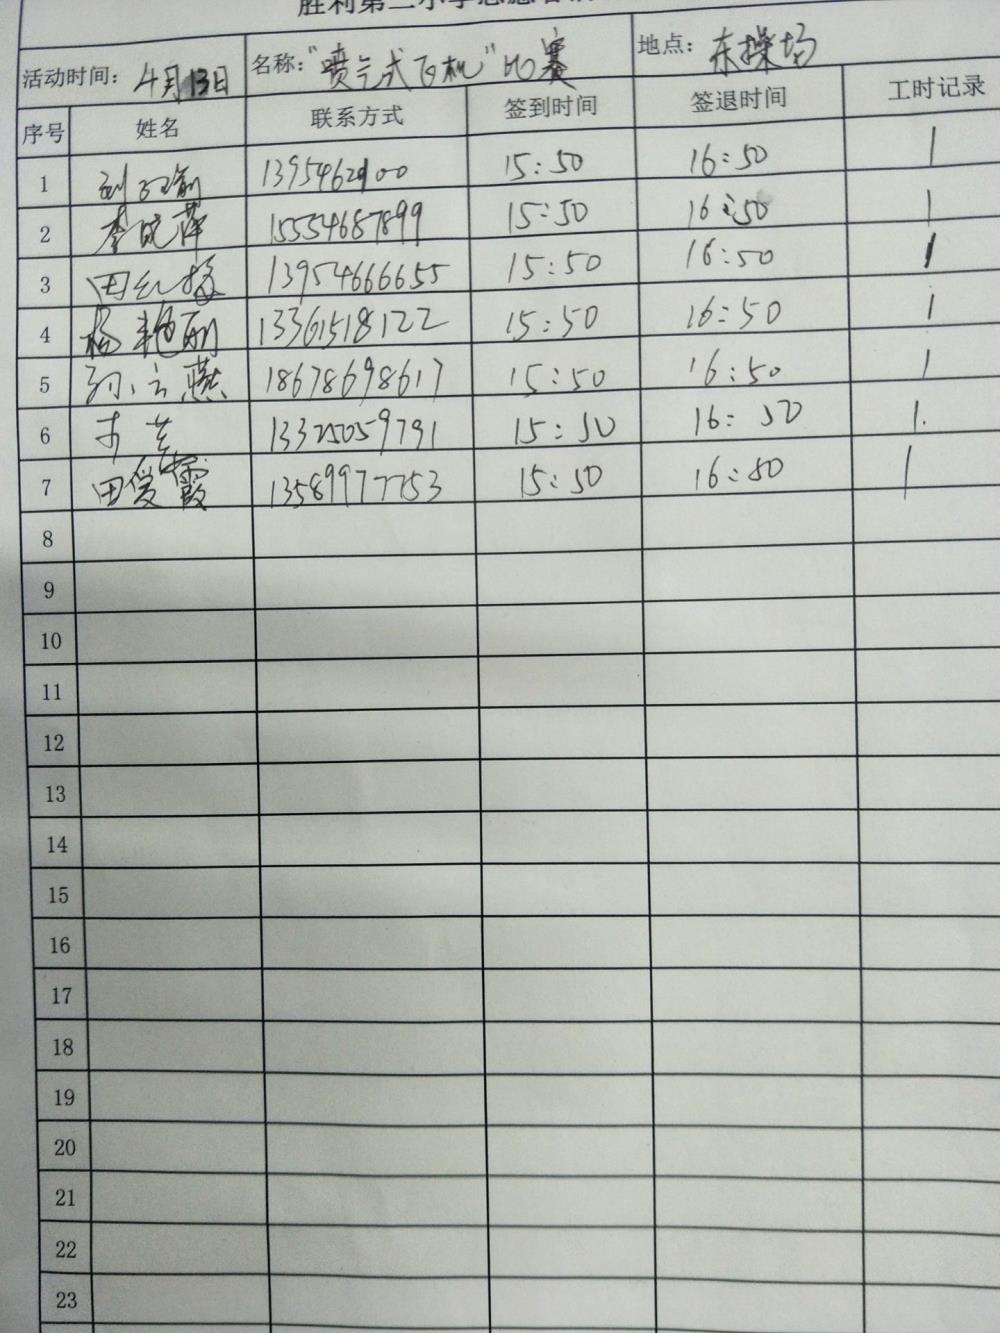 胜利第二小学志愿者
活动时间：4月13日 名称："喷气式飞机"比赛 地点：东操场
序号 姓名 联系方式 签到时间 签退时间 工时记录
1 15:50 16:50 1
2 李晓萍 15554687899 15:50 16:50 1
3 田红梅 13954666655 15:50 16:50 1
4 杨艳丽 13361518122 15:50 16:50 1
5 孙云燕 18678698617 15:50 16:50 1
6 15:50 16:50 1.
7 田爱霞 13589977753 15:50 16:50 1
8
9
10
11
12
13
14
15
16
17
18
19
20
21
22
23